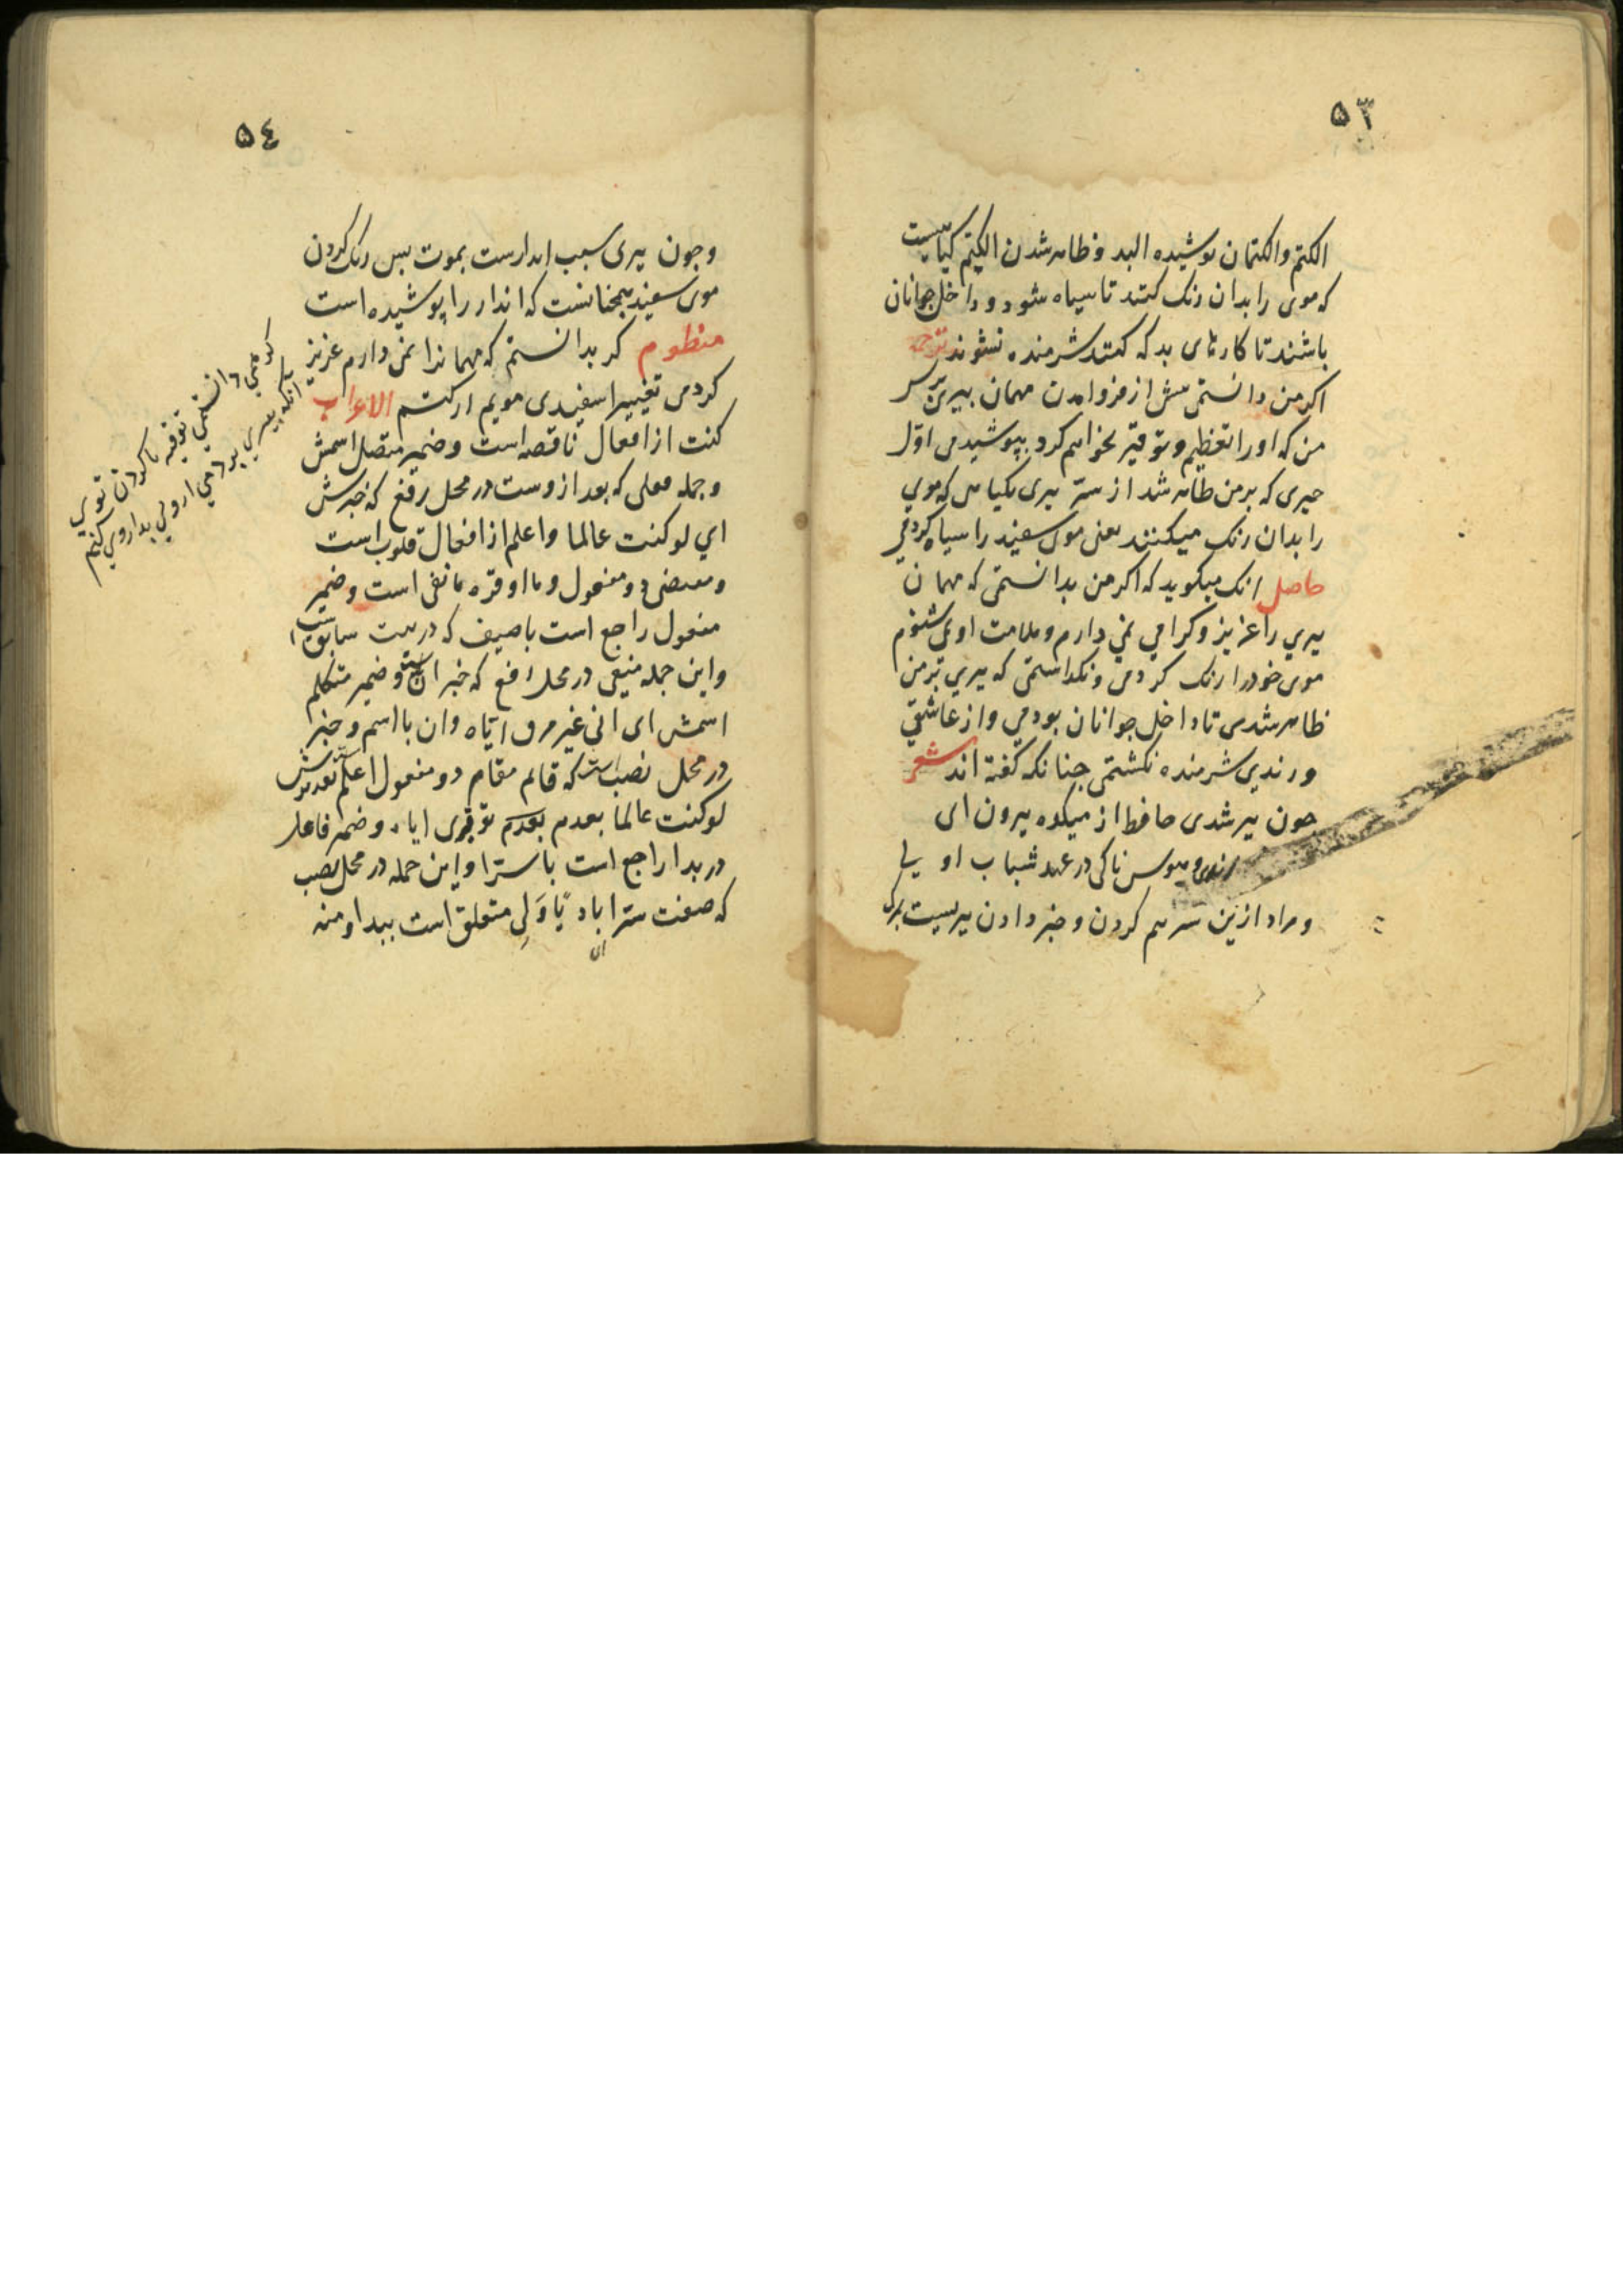 ۵۳
الکتم والکتمان پوشیدن البد و ظاهر شدن الکتم کیاهیست
که موی را بدان رنک کنند تا سیاه شود و داخل جوانان
باشند تا کارهای بد که کنند شرمنده نشوند ترجمه
اکر من دانستمی پیش از فرو امدن مهمان پیری بر سر
من که او را تعظیم و توقیر نخواهم کرد بپوشیدمی اول
چیزی که بر من ظاهر شد از ستر پیری بکیاهی که موی
را بدان رنک میکنند یعنی موی سفید را سیاه کردمی
حاصل انک میکوید که اکر من بدانستمی که مهمان
پیری را عزیز و کرامی نمی دارم و ملامت او می شنوم
موی خود را رنک کردمی و نکذاستمی که پیری بر من
ظاهر شدی تا داخل جوانان بودمی و از عاشقی
و رندی شرمنده نکشتمی چنانکه کفته اند شعر
چون پیر شدی حافظ از میکده بیرون ای
رندی و هوس ناکی در عهد شباب اولی
و مراد ازین سر هم کردن و خبر دادن پیریست بمرک
۵٤
و چون پیری سبب اندارست بموت پس رنک کردن
موی سفید همچنانست که اندار را پوشیده است
منظوم کر بدانستم که مهمانرا نمی دارم عزیز
کردمی تغییر اسفیدی مویم از کتم الاعراب
کنت از افعال ناقصه است و ضمیر متصل اسمش
و جمله فعلی که بعد ازوست در محل رفع که خبرش
ای لو کنت عالما و اعلم از افعال قلوب است
و مقتضی دو مفعول و ما اوقره ما نفی است و ضمیر
مفعول راجع است با ضیف که در بیت سابق است
و این جمله منفی در محل رفع که خبر ان است و ضمیر متکلم
اسمش ای انی غیر موقر ایاه و ان با اسم و خبر
در محل نصب است که قایم مقام دو مفعول اعلم تقدیرش
لو کنت عالما بعدم توقیری ایاه و ضمیر فاعل
در بدا راجع است با سترا و این جمله در محل نصب
که صفت سترا باد یا ولی متعلق است ببدا و منه